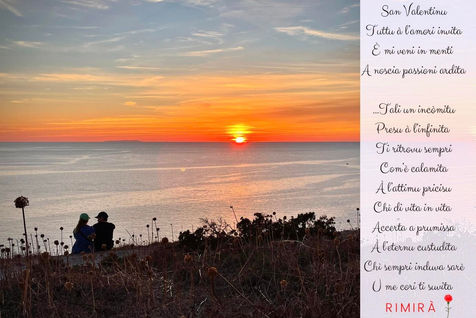 San Valentinu
Tuttu à l'amori invita
È mi veni in menti
A noscia passioni ardita
...Tali un incòmitu
Presu à l'infinita
Ti ritrovu sempri
Com'è calamita
À l'attimu pricisu
Chi dà vita in vita
Accerta a prumissa
À l'eternu custudita
Chì sempri induva sarè
U me cori ti suvita
RIMIRÀ